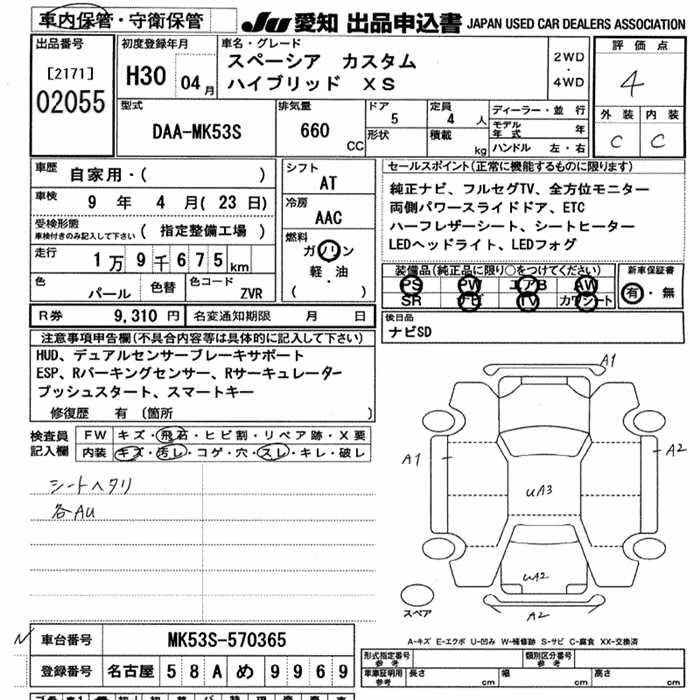 車内保管・守衛保管
JU 愛知 出品申込書 JAPAN USED CAR DEALERS ASSOCIATION
出品番号
[2171]
02055
初度登録年月
H30 04月
車名・グレード
スペーシア カスタム
ハイブリッド XS
2WD
・
4WD
評価点
4
外装 内装
C C
型式
DAA-MK53S
排気量
660
CC
ドア
5
形状
定員
4 人
積載
kg
ディーラー・並行
モデル年式 年
ハンドル 左・右
車歴
自家用・( )
車検
9 年 4 月(23日)
受検形態
車検付きのみ記入して下さい
(指定整備工場)
走行
1万9千675km
色
パール
色替
色コード
ZVR
シフト
AT
冷房
AAC
燃料
ガソリン
軽・油
( )
セールスポイント(正常に機能するものに限ります)
純正ナビ、フルセグTV、全方位モニター
両側パワースライドドア、ETC
ハーフレザーシート、シートヒーター
LEDヘッドライト、LEDフォグ
装備品(純正品に限り○をつけてください)
PS PW エアB AW
SR ナビ TV カワシート
新車保証書
有・無
後日品
ナビSD
R券 9,310円 名変通知期限 月 日
注意事項申告欄(不具合内容等は具体的に記入して下さい)
HUD、デュアルセンサーブレーキサポート
ESP、Rパーキングセンサー、Rサーキュレーター
プッシュスタート、スマートキー
修復歴 有(箇所 )
検査員
記入欄
FW キズ・飛石・ヒビ割・リペア跡・X要
内装 キズ・汚レ・コゲ・穴・スレ・キレ・破レ
シートヘタリ
各AU
A1
A1
A2
UA3
UA2
A2
スペア
A-キズ E-エクボ U-凹み W-補修跡 S-サビ C-腐食 XX-交換済
車台番号 MK53S-570365
登録番号 名古屋 58A め 9969
形式指定番号
参考
類別区分番号
参考
車庫証明用
参考
長さ cm 幅 cm 高さ cm